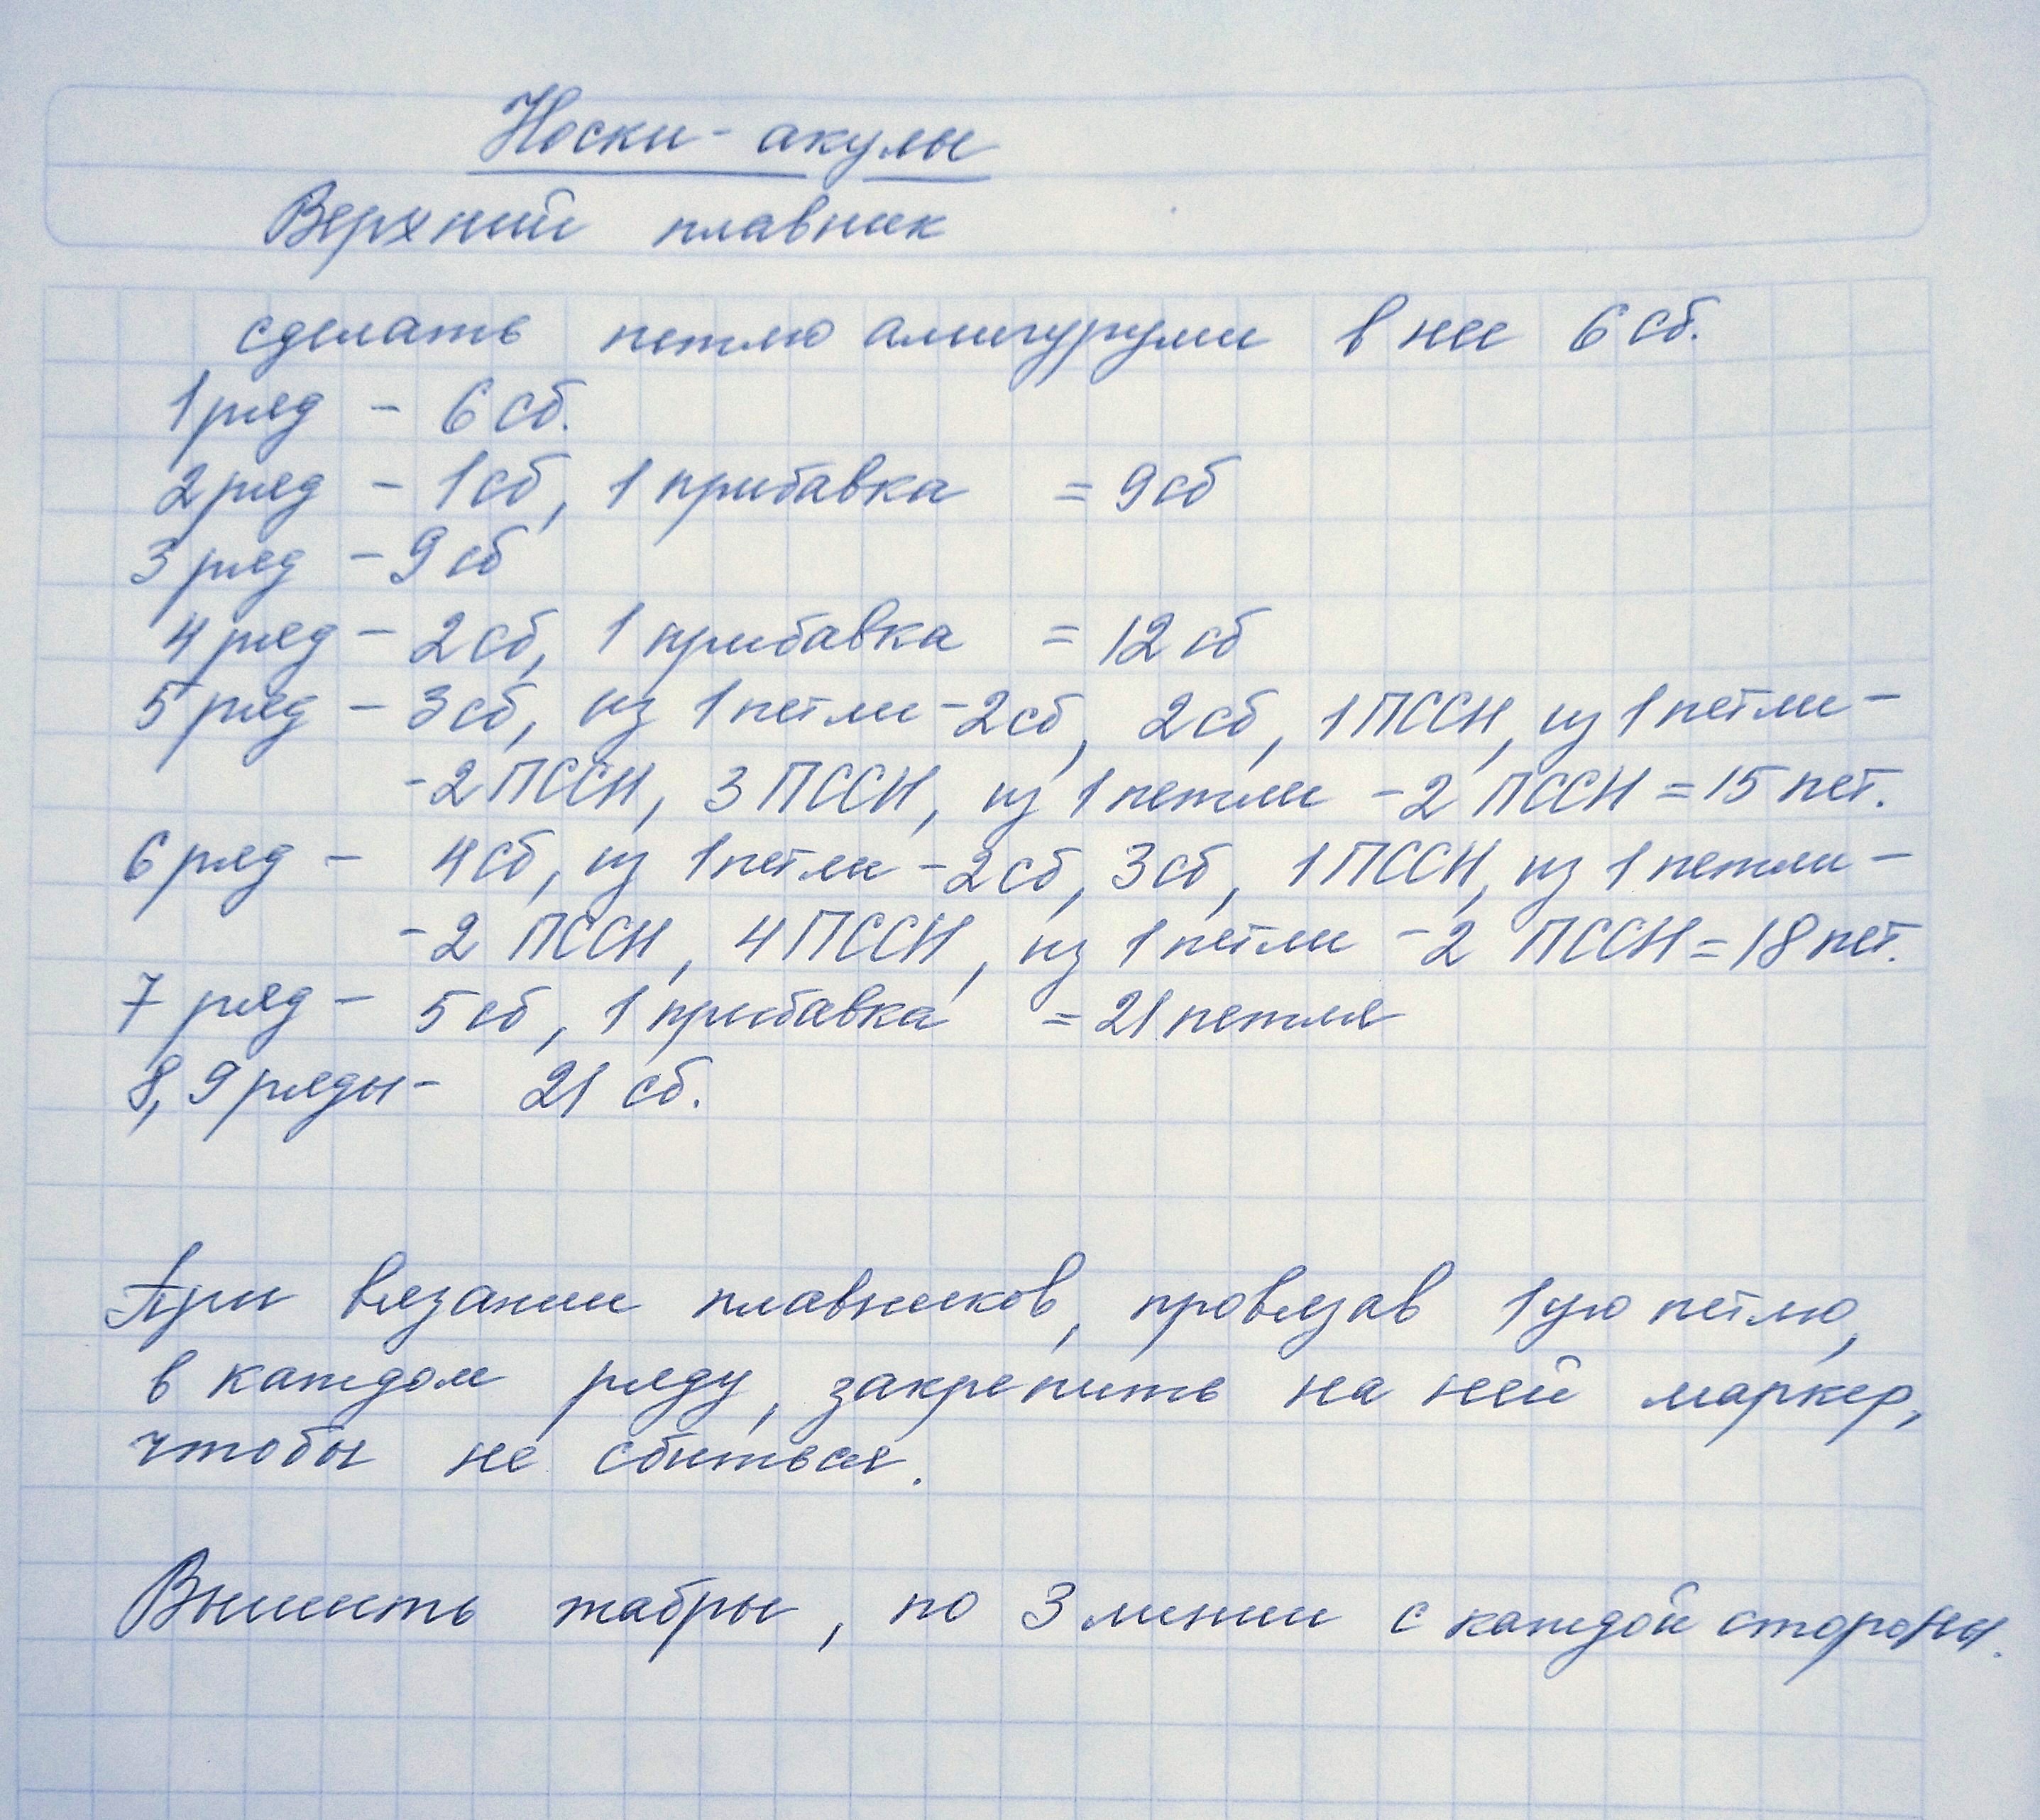 Носки-акулы
Верхний плавник
сделать петлю амигуруми в нее 6 сб.
1 ряд - 6 сб.
2 ряд - 1 сб, 1 прибавка = 9 сб
3 ряд - 9 сб
4 ряд - 2 сб, 1 прибавка = 12 сб
5 ряд - 3 сб, из 1 петли - 2 сб, 2 сб, 1 ПССН, из 1 петли -
- 2 ПССН, 3 ПССН, из 1 петли - 2 ПССН = 15 пет.
6 ряд - 4 сб, из 1 петли - 2 сб, 3 сб, 1 ПССН, из 1 петли -
- 2 ПССН, 4 ПССН, из 1 петли - 2 ПССН = 18 пет.
7 ряд - 5 сб, 1 прибавка = 21 петля
8, 9 ряды - 21 сб.
При вязании плавников, провязав 1ую петлю,
в каждом ряду, закрепить на ней маркер,
чтобы не сбиться.
Вышить жабры, по 3 линии с каждой стороны.